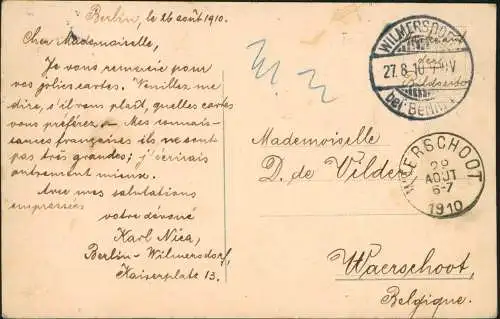 Berlin, le 26 août 1910.
Cher Mademoiselle,
Je vous remercie pour
vos jolies cartes. Veuillez me
dire, s'il vous plaît, quelles cartes
vous préférez. Mes connais-
sances françaises ils ne sont
pas très grandes; j'écrirais
autrement mieux.
Avec mes salutations
empressées
votre dévoué
Karl Nica,
Berlin-Wilmersdorf,
Kaiserplatz 13.
WILMERSDORF
27.8.10
bei BERLIN
Mademoiselle
D. de Vilder
WAERSCHOOT
29
AOUT
6-7
1910
Waerschoot,
Belgique.